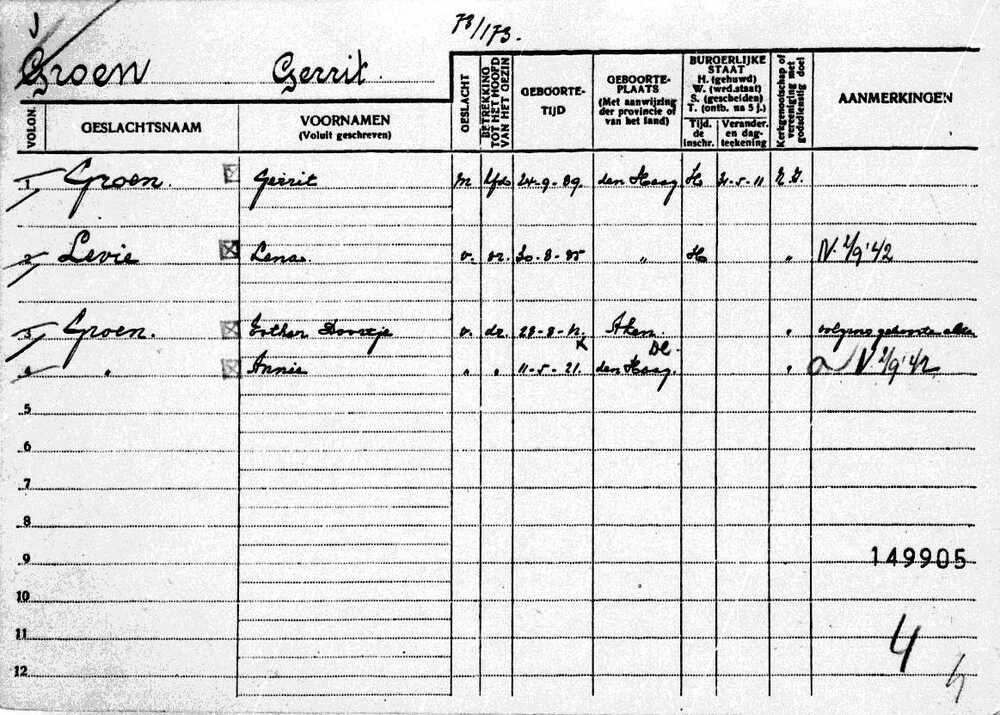 J
73/173.
Groen Gerrit.
VOLGN. GESLACHTSNAAM VOORNAMEN (Voluit geschreven) GESLACHT BETREKKING TOT HET HOOFD VAN HET GEZIN GEBOORTE-TIJD GEBOORTE-PLAATS (Met aanwijzing der provincie of van het land) BURGERLIJKE STAAT H. (gehuwd) W. (wrd.staat) S. (gescheiden) T. (ontb. na 5 j.) Tijd. de inschr. Verander. en dag-teekening Kerkgenootschap of vereeniging met godsdienstig doel AANMERKINGEN
1 Groen. Gerrit m hfd 24-9-89. den Haag H 21-5-11 N.I.
2 Levie Lena. v. vr. 30-8-85 " H " N. 2/9'42
3 Groen. Esther Doortje v. dr. 28-8-12. Aken. " volgens geboorte akte
DL.
4 " Annie " " 11-5-21. den Haag. " a N. 2/9'42
5
6
7
8
9 149905
10
11 4
12 h